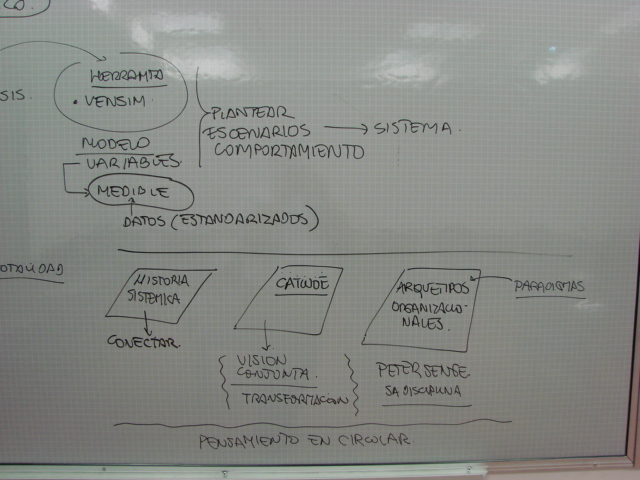 HERRAMTA
• VENSIM.
SIS.
PLANTEAR
ESCENARIOS → SISTEMA.
COMPORTAMIENTO
MODELO
VARIABLES
MEDIBLE
DATOS (ESTANDARIZADOS)
OTALIDAD
HISTORIA
SISTEMICA
CONECTAR.
CATWDE
VISION
CONJUNTA.
TRANSFORMACION
ARQUETIPOS
ORGANIZACIO-
NALES.
PARADIGMAS
PETER SENGE
5A DISCIPLINA
PENSAMIENTO EN CIRCULAR.